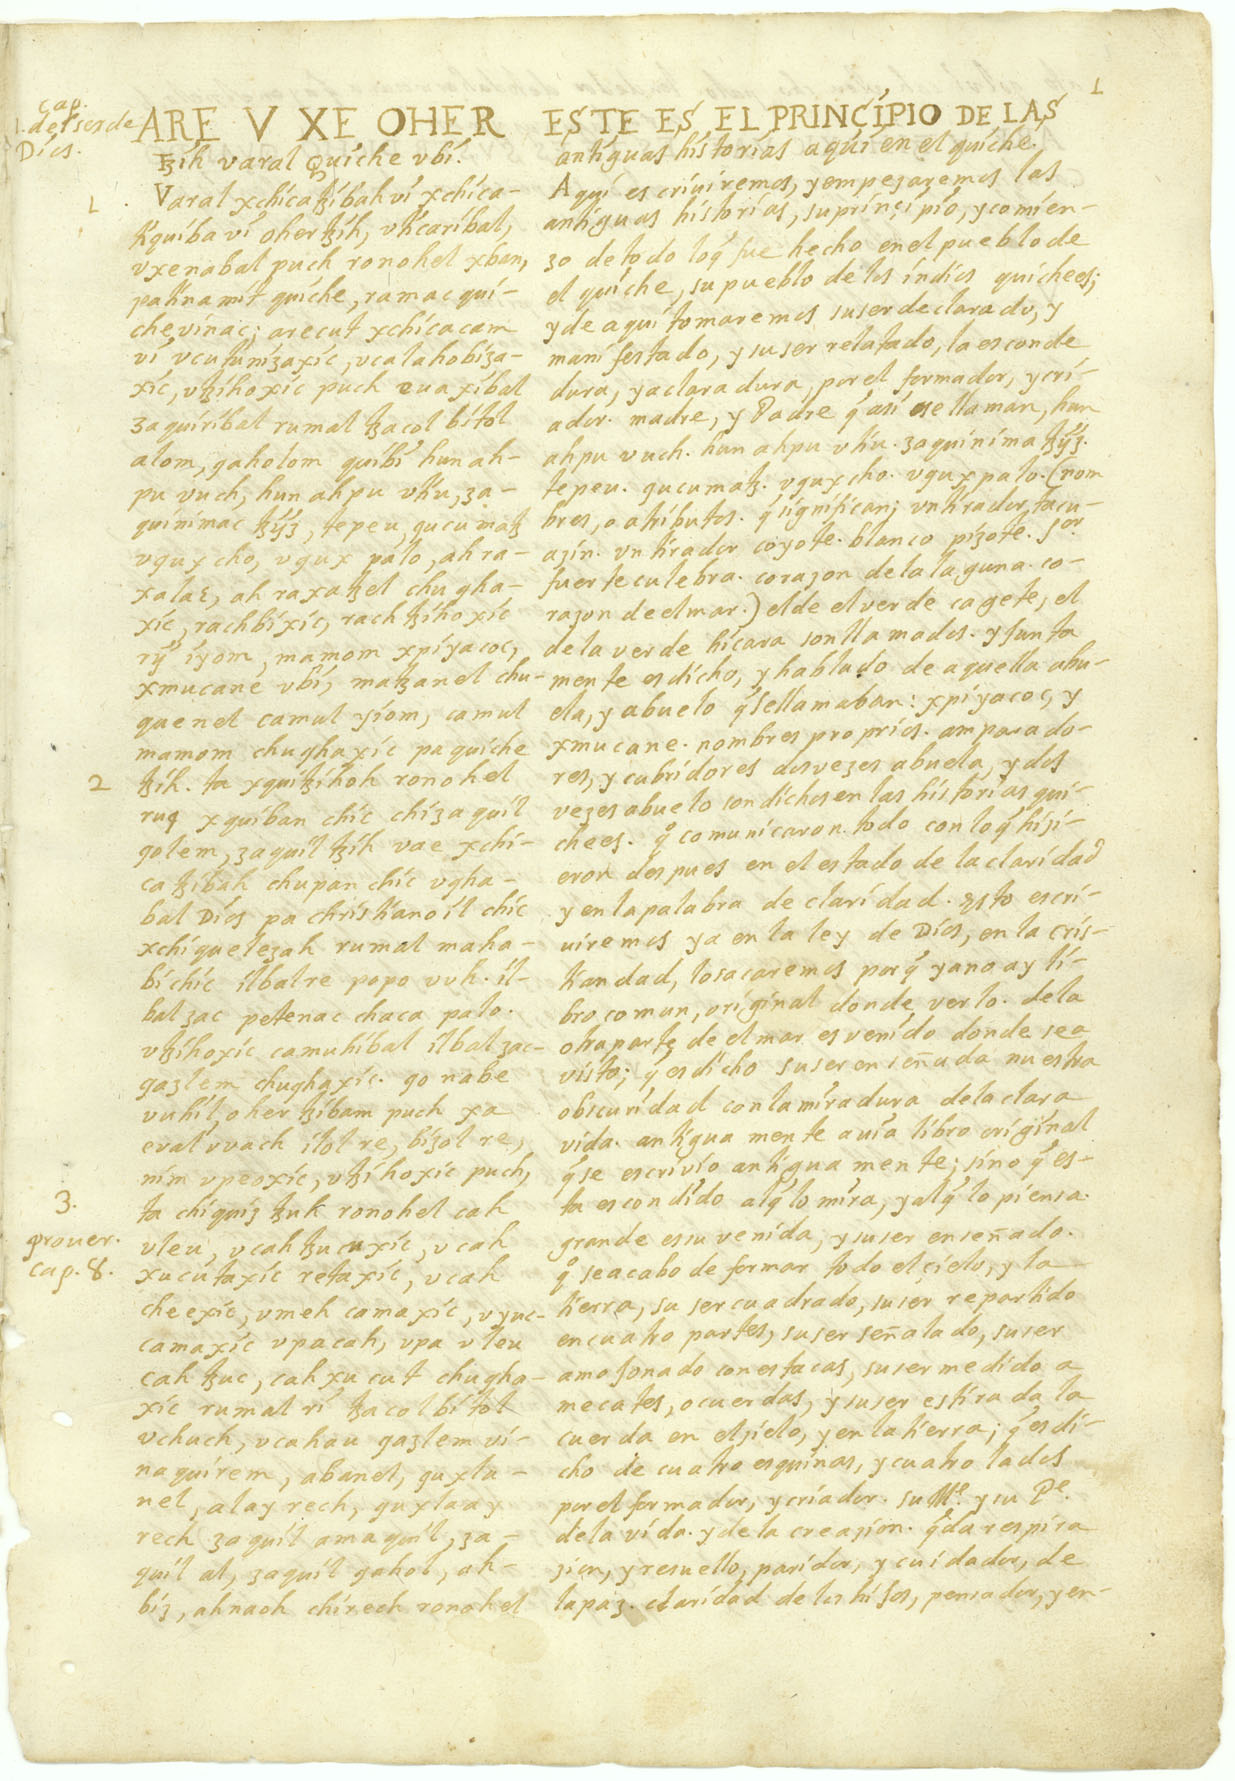 1
cap.
1. del ser de
Dios.
ARE V XE OHER
ꜩih varal Quiche vbi.
1
Varal xchicaꜩibah vi xchica-
tiquiba vi oher ꜩih, vticaribal,
vxenabal puch ronohel xban,
pa tinamit quiche, ramac qui-
che vinac; arecut xchicacam
vi vcutunizaxic, vcalahobiza-
xic, vꜩihoxic puch euaxibal
zaquiribal rumal ꜩacol bitol
alom, qaholom quibi hun ah-
pu vuch, hun ahpu vtiu, za-
quinimac ꜩÿz, tepeu, qucumaꜩ
vqux cho, vqux palo, ah ra-
xalaɛ, ah raxaꜩel chugha-
xic, rachbixic, rach ꜩihoxic
rÿ iyom, mamom xpiyacoc,
xmucane vbi, maꜩanel chu-
quenel camul yiom, camul
mamom chughaxic pa quiche
2
ꜩih. ta xquiꜩihoh ronohel
ruq xquiban chic chi zaquil
qolem, zaquil ꜩih vae xchi-
ca ꜩibah chupan chic vgha-
bal Dios pa christianoil chic
xchiquelezah rumal maha-
bi chic ilbal re popo vuh. il-
bal zac petenac chaca palo.
vꜩihoxic camuhibal ilbal zac-
qazlem chughaxic. qo nabe
vuhil, oher ꜩibam puch xa
eval vvach ilol re, bizol re,
nim vpeoxic, vꜩihoxic puch,
3.
ta chiquiz ꜩuk ronohel cah
prouer.
cap. 8.
vleu, vcah ꜩucuxic, vcah
xucutaxic retaxic, vcah
cheexic, vmeh camaxic, vyuc-
camaxic vpa cah, vpa vleu
cah ꜩuc, cah xucut chugha-
xic rumal ri ꜩacol bitol
vchuch, vcahau qazlem vi-
naquirem, abanel, quxla-
nel, alay rech, quxlaay
rech zaquil amaquil, za-
quil al, zaquil qahol, ah-
biz, ahnaoh chirech ronohel
ESTE ES EL PRINCIPIO DE LAS
antiguas historias aqui en el quiche.
Aqui escriuiremos, y empezaremos las
antiguas historias, su prinçipio, y comien-
zo de todo loq̃ fue hecho en el pueblo de
el quiche, su pueblo de los indios quichees;
y de aqui tomaremos su ser declarado, y
manifestado, y su ser relatado, la esconde
dura, y aclaradura, por el formador, y cri-
ador. madre, y Padre q̃ asi se llaman, hun
ahpu vuch. hun ahpu vtiu. zaquinima ꜩÿz.
tepeu. qucumaꜩ. vquxcho. vqux palo. (nom
bres, o atributos. q̃ significan; vn tirador, tacu-
azin. vn tirador coyote. blanco pizote. Sor.
fuerte culebra. corazon de la laguna. co-
razon de el mar.) el de el verde cagete, el
de la verde hicara son llamados. y junta
mente es dicho, y hablado de aquella abu-
ela, y abuelo q̃ se llamaban: xpiyacoc, y
xmucane. nombres proprios. amparado-
res, y cubridores dos vezes abuela, y dos
vezes abuelo son dichos en las historias qui-
chees. q̃ comunicaron todo con loq̃ hizi-
eron despues en el estado de la claridad
y en la palabra de claridad. Esto escri-
uiremos ya en la ley de Dios, en la cris-
tiandad, lo sacaremos porq̃ ya no ay li-
bro comun, original donde verlo. de la
otra parte de el mar es venido donde sea
visto; q̃ es dicho su ser enseñada nuestra
obscuridad con la miradura de la clara
vida. antigua mente auia libro original
q̃ se escrivio antigua mente; sino q̃ es-
ta escondido alq̃ lo mira, y alq̃ lo piensa.
grande es su venida, y su ser enseñado.
q̃ se acabo de formar todo el çielo, y la
tierra, su ser cuadrado, su ser repartido
en cuatro partes, su ser señalado, su ser
amojonado con estacas, su ser medido a
mecates, o cuerdas, y su ser estirada la
cuerda en el zielo, y en la tierra; q̃ es di-
cho de cuatro esquinas, y cuatro lados
por el formador, y criador. su Me. y su Pe.
de la vida. y de la creazion. q̃ da respira
zion, y resuello, paridor, y cuidador, de
la paz. claridad de los hijos, pensador, y en-